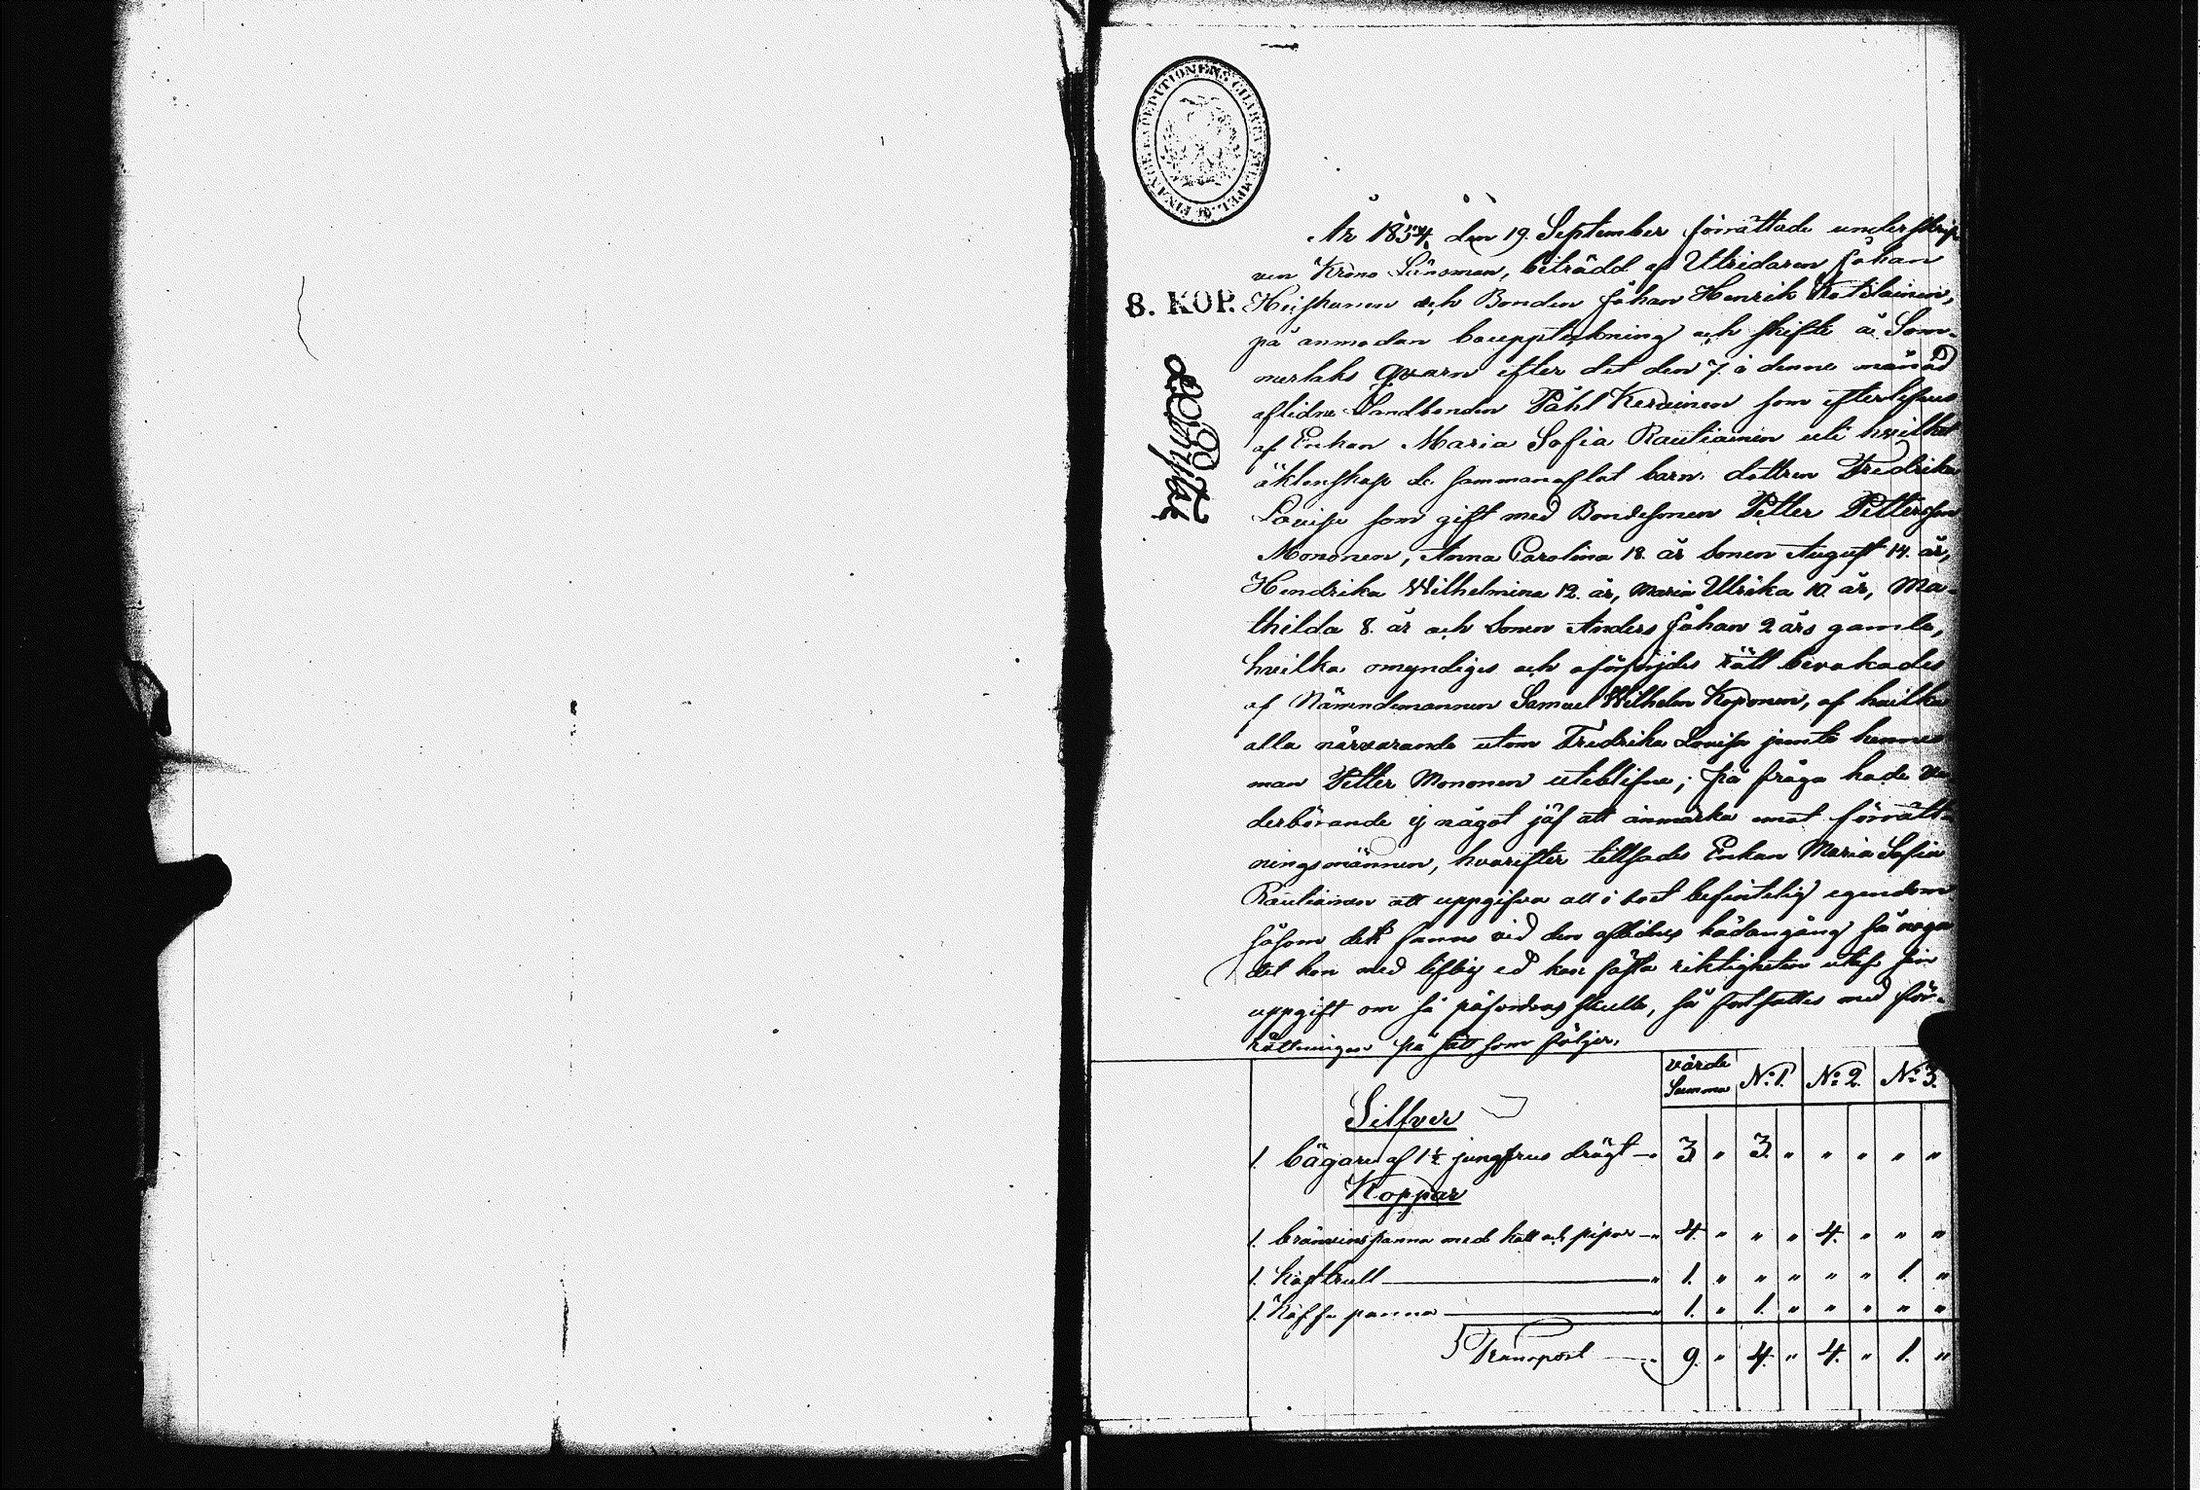 FINANCE EXPEDITIONENS CHARTÆ STEMPEL
År 1854 den 19. September förrättade underskrif-
ven Krono Länsman, biträdd af Utridaren Johan
8. KOP.
Heiskanen och Bonden Johan Henrik Kotilainen,
på anmodan bouppteckning och skifte å Som-
merlaks Qvarn efter det den 7 i denne månad
aflidne Landbonden Påhl Keräinen som efterlefves
af Enkan Maria Sofia Rautiainen uti hvilket
äktenskap de sammanaflat barn: dottren Fredrika
Lovisa som gift med Bondesonen Petter Pettersson
Mononen, Anna Carolina 18. år sonen August 14. år,
Hendrika Wilhelmina 12. år, Maria Ulrika 10 år, Ma-
thilda 8. år och Sonen Anders Johan 2 års gamla,
hvilka omyndiges och oförsörjdes rätt bevakades
af Nämndemannen Samuel Wilhelm Koponen, af hvilka
alla närvarande utom Fredrika Lovisa jemte hennes
man Petter Mononen uteblifne; på fråga hade ve-
derbörande ej något jäf att anmärka emot förrätt-
ningsmännen, hvarefter tillsades Enkan Maria Sofia
Rautiainen att uppgifva all i boet befintelig egendom
såsom det fanns vid den aflidnes hädangång så noga
det hon med liflig ed kan fästa riktigheten utaf sin
uppgift om så påfordras skulle, så fortsattes med för-
rättningen på sätt som följer.
värde Summa N:o 1. N:o 2. N:o 3.
Silfver
1. bägare af 1½ jungfrus drägt — 3 " 3. " " " " "
Koppar
1. bränvinspanna med hatt och pipor — 4. " " " 4. " " "
1. Kastrull — 1. " " " " " 1. "
1. Kaffe panna — 1. " 1. " " " " "
Transport — 9. " 4. " 4. " 1. "